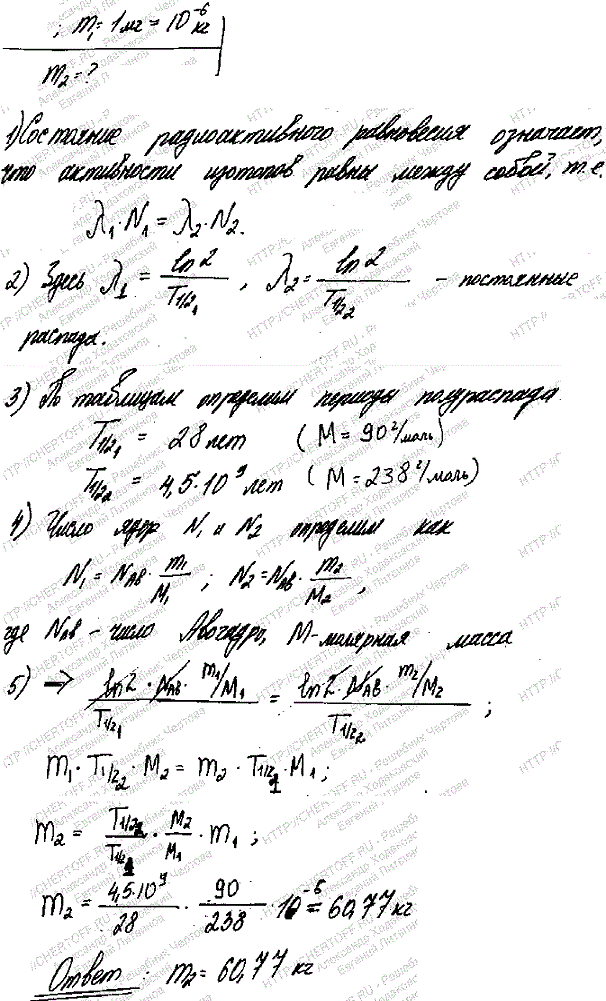 ; m₁ = 1 мг = 10⁻⁶ кг
m₂ = ?
1) Состояние радиоактивного равновесия означает,
что активности изотопов равны между собой, т.е.
λ₁·N₁ = λ₂·N₂.
2) Здесь λ₁ = ln 2 / T₁/₂₁ , λ₂ = ln 2 / T₁/₂₂ – постоянные
распада.
3) По таблицам определим периоды полураспада
T₁/₂₁ = 28 лет (M = 90 г/моль)
T₁/₂₂ = 4,5·10⁹ лет (M = 238 г/моль)
4) Число ядер N₁ и N₂ определим как
N₁ = Nав · m₁/M₁ ; N₂ = Nав · m₂/M₂ ,
где Nав – число Авогадро, M – молярная масса
5) ⇒ ln 2 · Nав · m₁/M₁ / T₁/₂₁ = ln 2 · Nав · m₂/M₂ / T₁/₂₂ ;
m₁ · T₁/₂₂ · M₂ = m₂ · T₁/₂₁ · M₁ ;
m₂ = T₁/₂₂ / T₁/₂₁ · M₂/M₁ · m₁ ;
m₂ = 4,5·10⁹ / 28 · 90 / 238 · 10⁻⁶ = 60,77 кг
Ответ : m₂ = 60,77 кг
HTTP://CHERTOFF.RU - Решебник Чертова
Александр Ходаковский
Евгений Литаинов